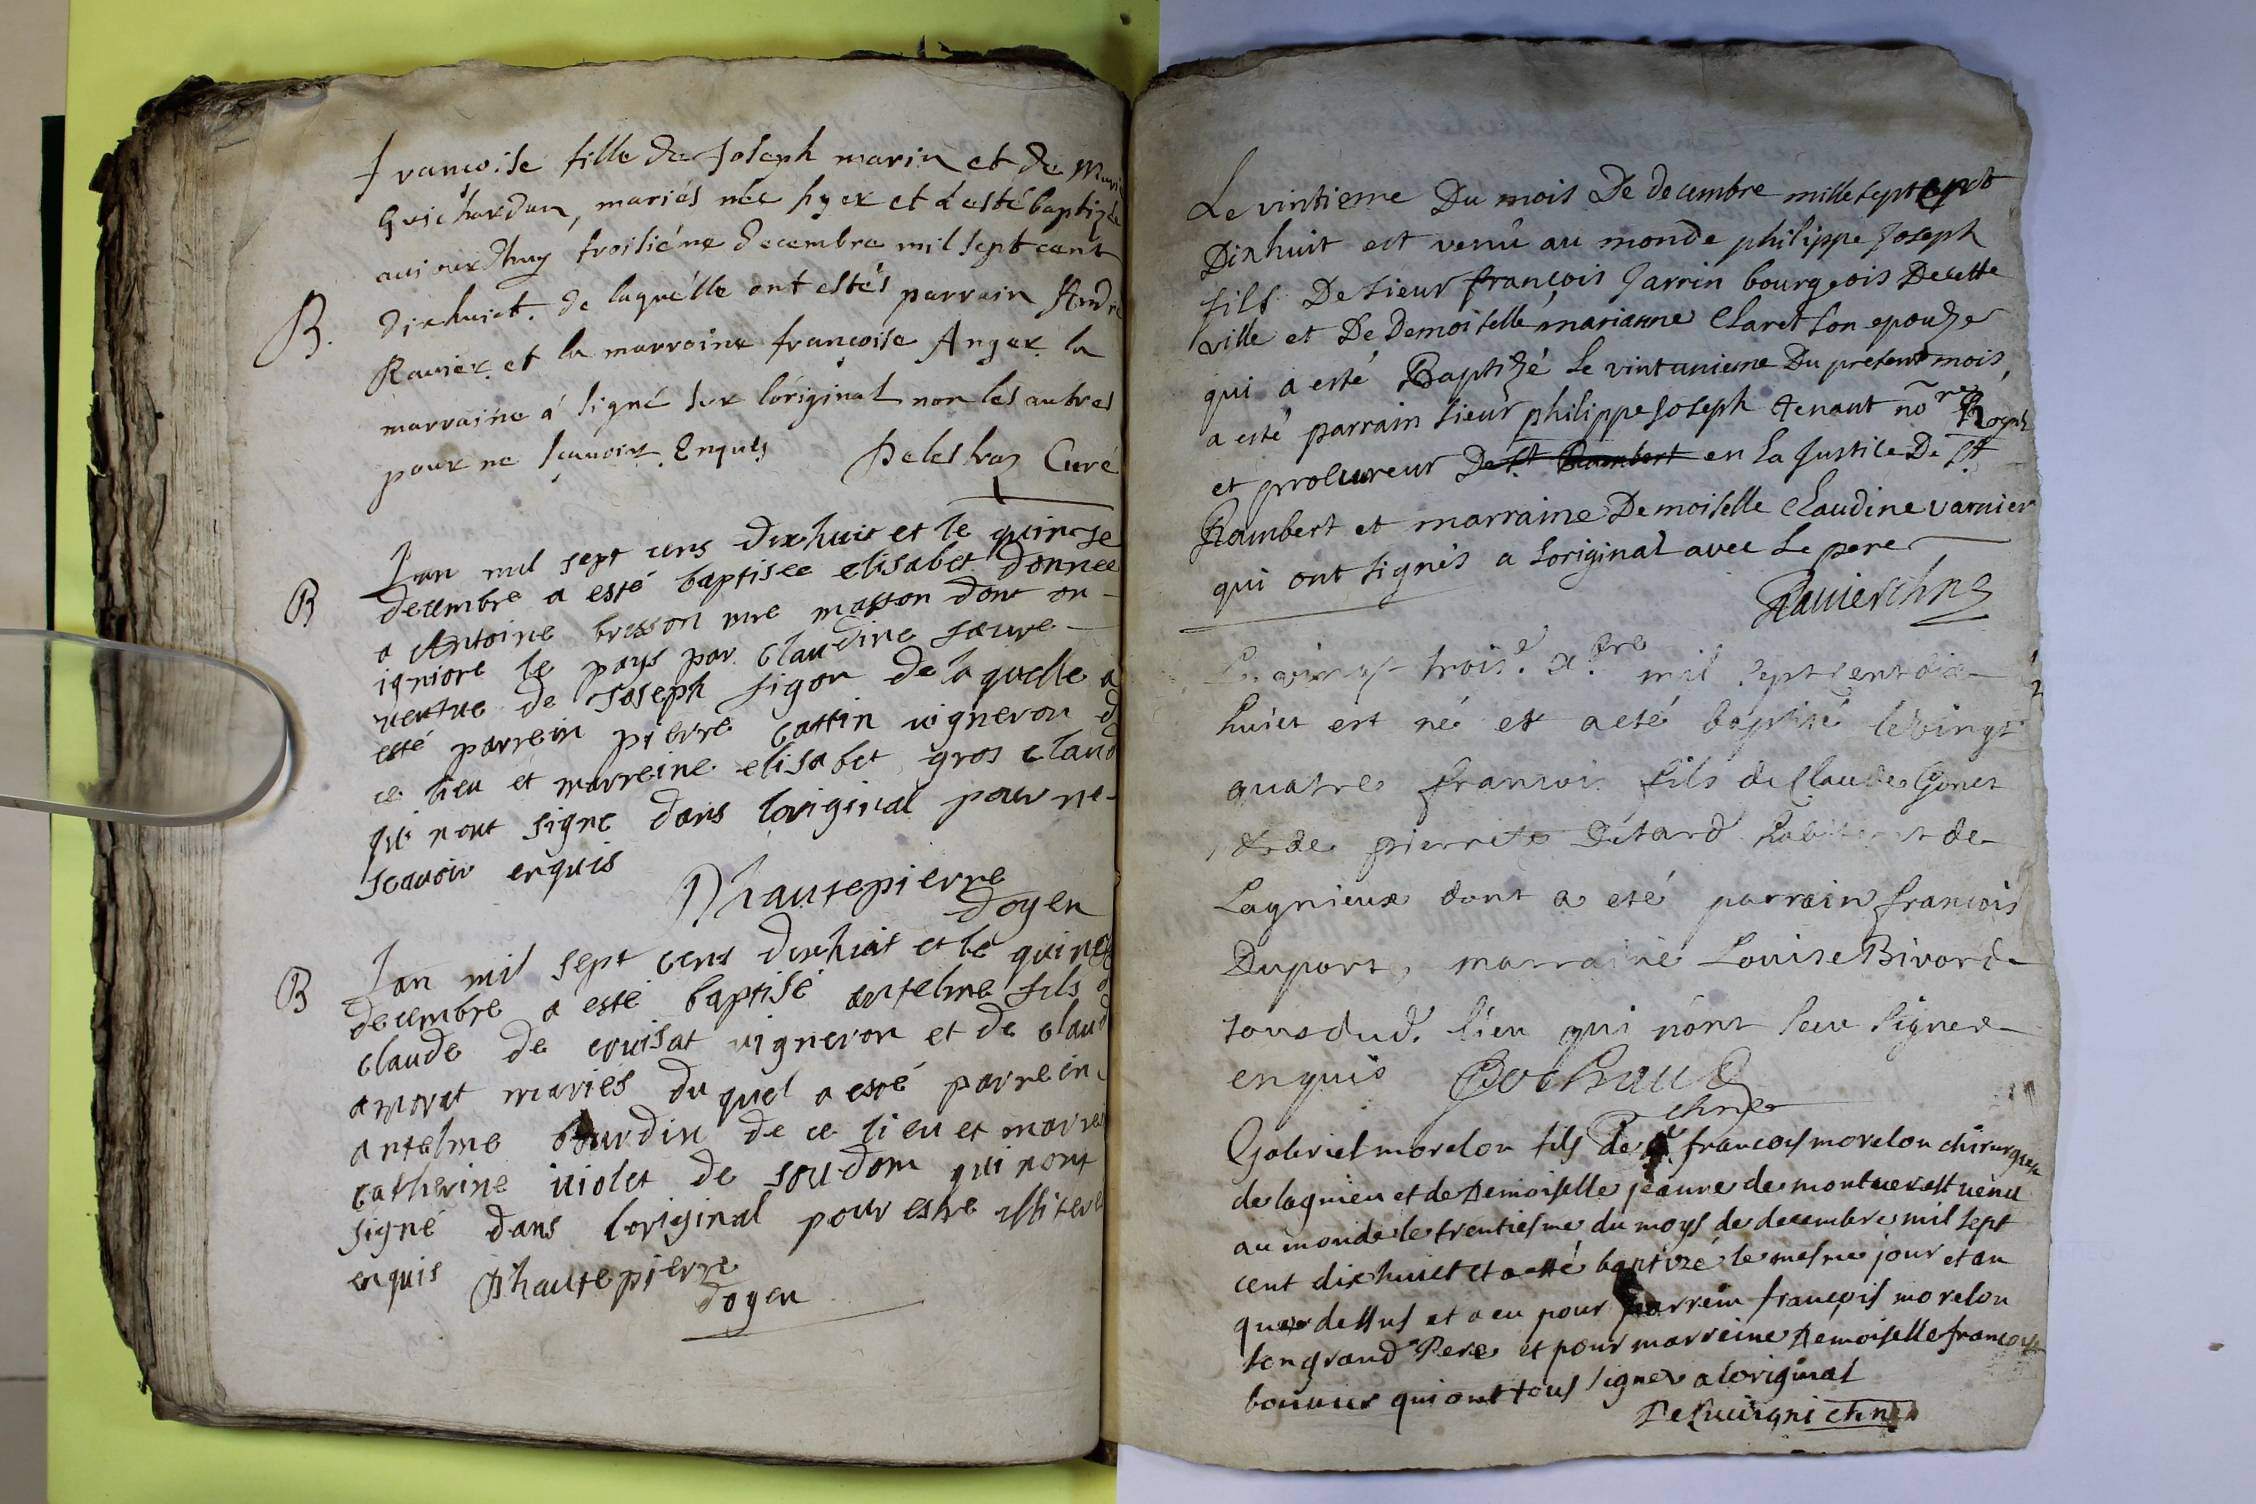 francoise fille de Joseph marin et de Marie
Guichardan, mariés née hyer et à esté baptizée
auiourdhuy troisiéme decembre mil sept cent
B. dixhuict. de laquélle ont estés parrain André
Rauier et la marraine francoise Anger la
marraine a signé sur l'original non les autres
pour ne scauoir Enquis Delestraz Curé
B Lan mil sept cens dixhuit et le quinse
decembre a esté baptisée elisabet donnee
a Antoine bresson mre masson dont on
igniore le pays par Claudine faure
veufue de Joseph sigon de laquelle a
esté parrein pierre cattin vigneron d
ce lieu et marreine elisabet gros claud
qui n'ont signe dans l'original pour ne
scauoir enquis Dhautepierre
doyen
B Lan mil sept cens dixhuit et le quinse
decembre a esté baptisé antelme fils d
claude de cruisat vigneron et de claud
amorat mariés du quel a esté parrein
antelme bourdin de ce lieu et marrei
catherine violet de soudom qui n'ont
signé dans l'original pour estre illitere
enquis Dhautepierre
doyen
Le vintieme Du mois De decembre mille sept cent
Dixhuit est venu au monde philippe Joseph
fils De sieur françois Jarrin bourgeois De cette
ville et De Demoiselle marianne Claret son epouze
qui a esté Baptizé Le vintunieme Du present mois,
a esté parrain sieur philippe Joseph tenant nore Royal
et procureur De St Rambert en La Justice De St
Rambert et marraine Demoiselle Claudine varnier
qui ont signés a Loriginal avec Le pere
Rauier chne
Le vingt trois.e x.bre mil sept cent dix
huict est né et a eté baptisé le vingt
quatre francois fils de Claude Gonet
et de pierrete Détard habitant de
Lagnieux dont a eté parrain francois
Duport, marraine Louise Bivord
tous dud. lieu qui n'ont sceu signer
enquis Cochaud
chne
Gabriel morelon fils De sr francois morelon chirurgien
de lagnieu et de Demoiselle jeanne de montuer est venu
au monde le trentiesme du moys de decembre mil sept
cent dixhuict et a esté baptizé le mesme jour et an
que dessus et a eu pour parrein françois morelon
son grand Pere et pour marreine Demoiselle francoyse
qui ont tous signer a loriginal
chne